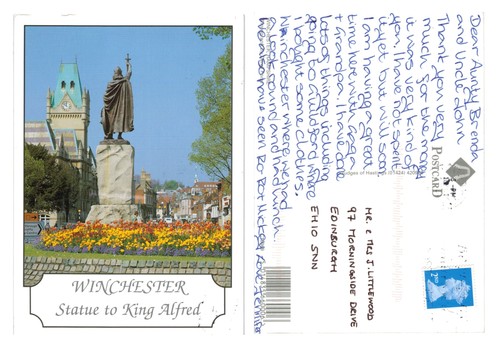 WINCHESTER
Statue to King Alfred
Dear Aunty Brenda
and Uncle John
Thank you very
much for the money
it was very kind of
you, I have not spent
it yet but will soon.
I am having a great
time here with
+ Grandpa. I have done
lots of things including
going to
I bought some clothes.
Winchester where we had
a look round and had lunch.
We also have seen
POSTCARD
MR. & MRS J. LITTLEWOOD
97 MORNINGSIDE DRIVE
EDINBURGH
EH10 5NN